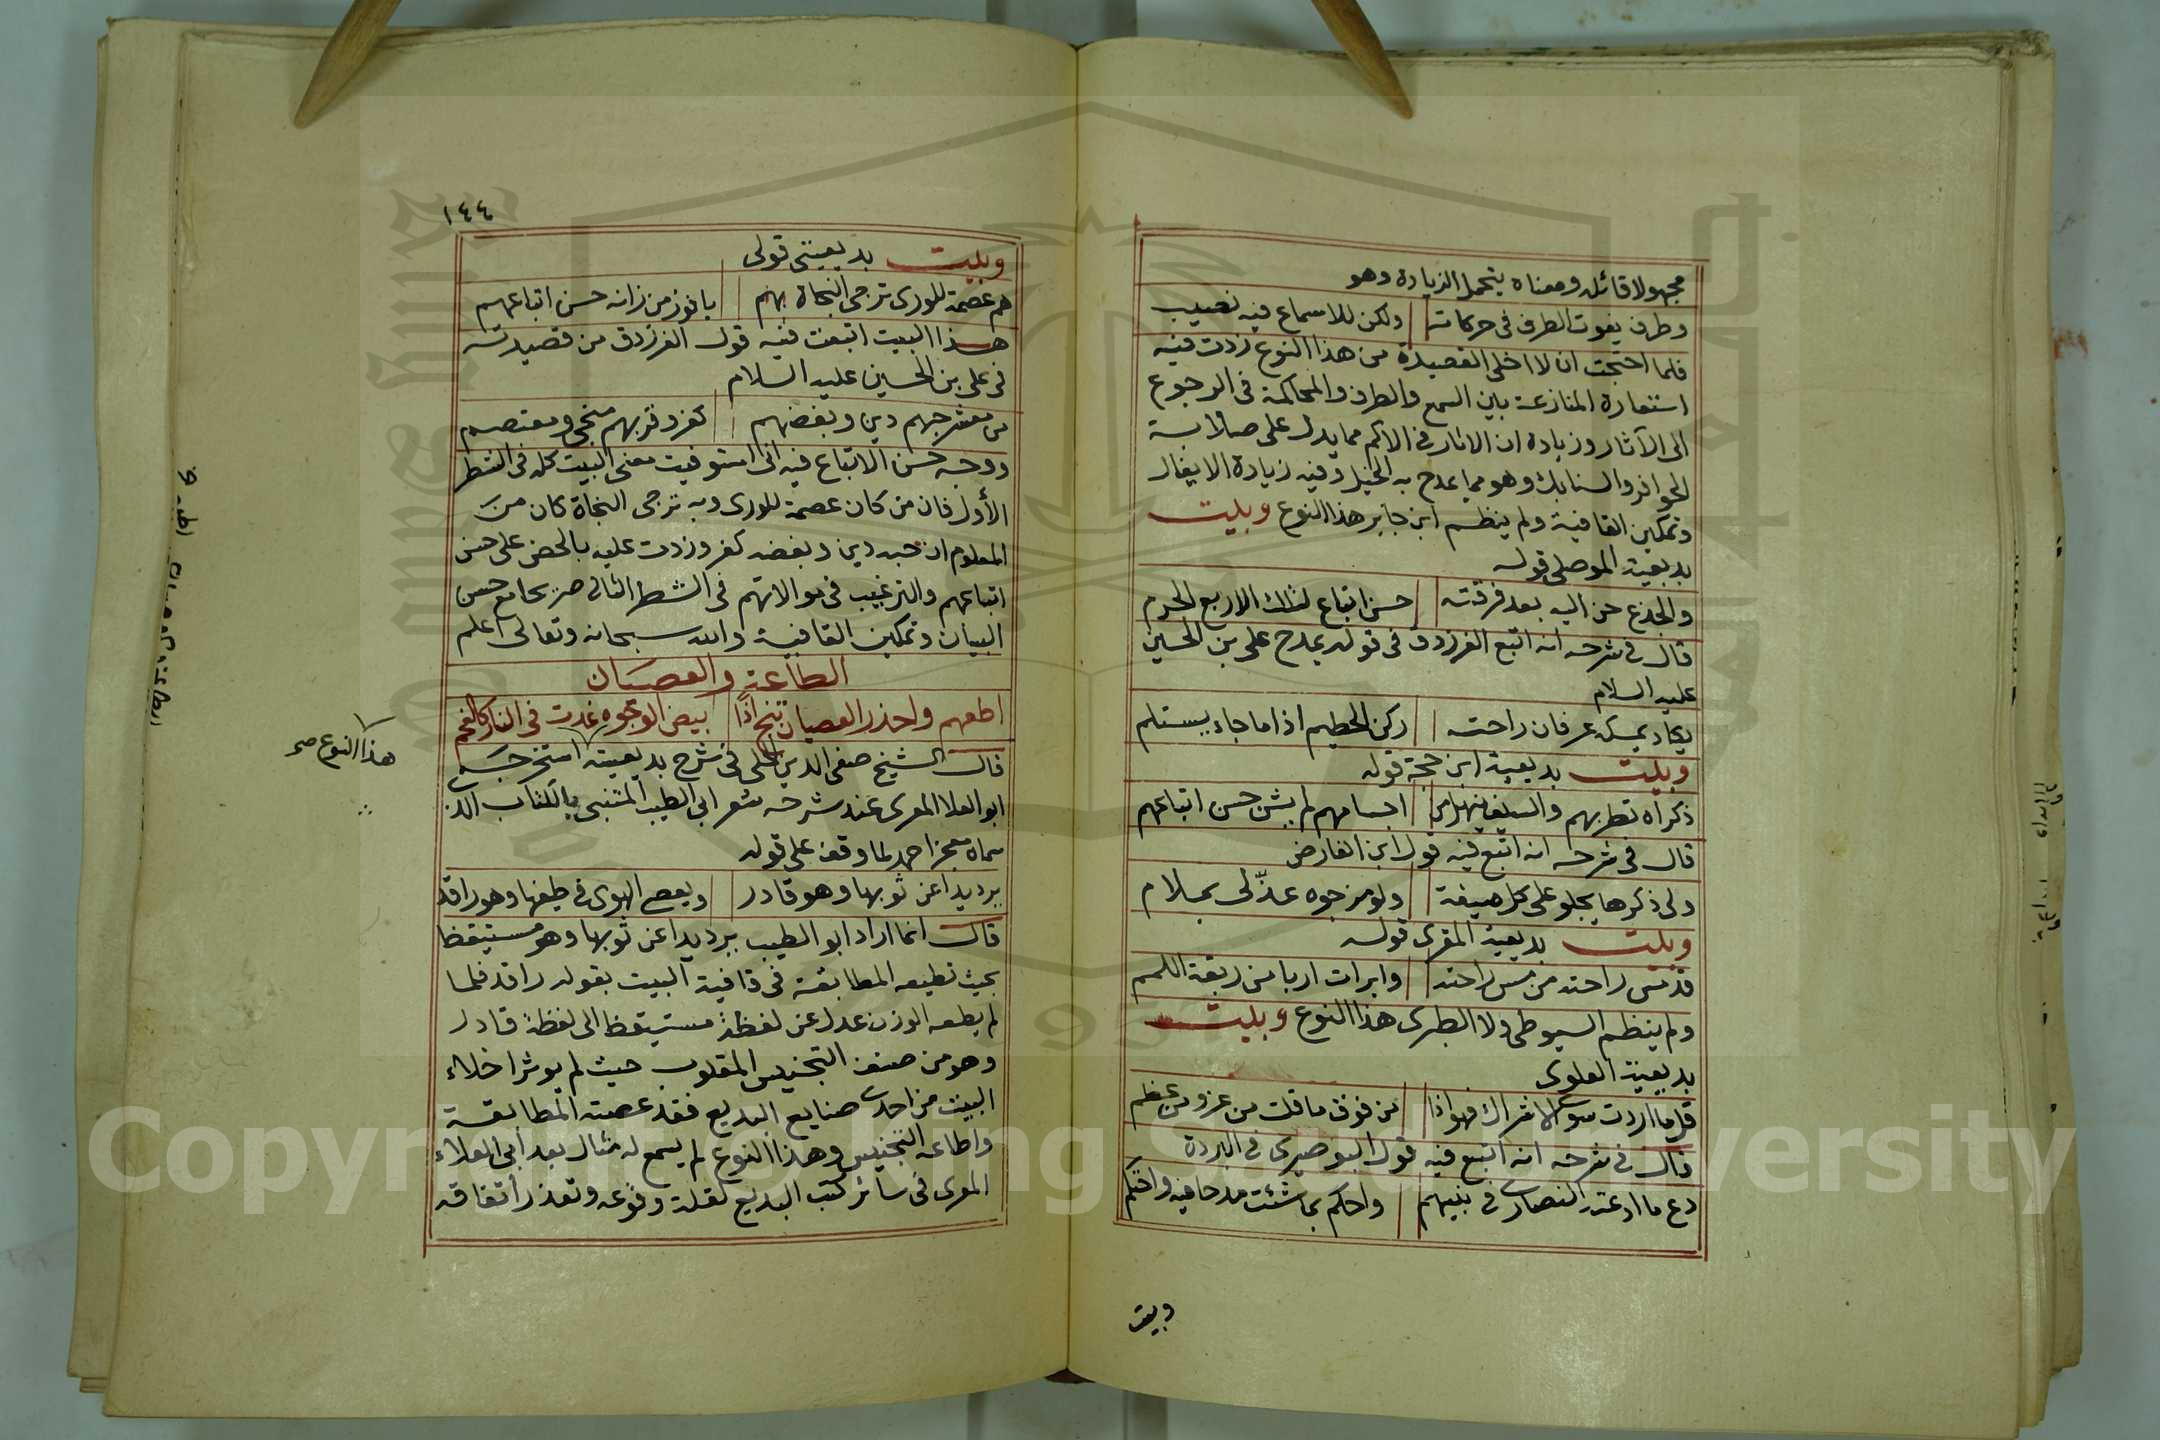 مجهولا قائله ومعناه يتحمل الزيادة وهو
وطرف يفوت الطرف في حركاته ولكن للاسماع فيه نصيب
فلما احتجت ان لا اخلى القصيدة من هذا النوع زدت فيه
استعارة المنازعة بين السمع والطرف والمحاكمة في الرجوع
الى الآثار وزيادة ان الاثار في الاكم مما يدل على صلابة
الحوافر والسنابك وهو مما يمدح به الخيل وفيه زيادة الايغال
وتمكين القافية ولم ينظم ابن جابر هذا النوع وبيت
بديعية الموصلي قوله
والجذع حن اليه بعد فرقته حسن اتباع لذاك الاربع الحرم
قال في شرحه انه اتبع الفرزدق في قوله يمدح على بن الحسين
عليه السلام
يكاد يمسكه عرفان راحته ركن الحطيم اذا ما جاء يستلم
وبيت بديعية ابن حجة قوله
ذكراه تطربهم والسيف ينهل من اجسامهم لم يشن حسن اتباعهم
قال في شرحه انه اتبع فيه قول ابن الفارض
ولى ذكرها يحلو على كل صيغة ولو مزجوه عذّلى بملام
وبيت بديعية المقرى قوله
راحته من مس راحته وابرات اربا من ربقة اللمم
ولم ينظم السيوطى ولا الطبرى هذا النوع وبيت
بديعية العلوى
قل ما اردت سوى الاشراك فهو اذا من فوق ما قلت من عز ومن عظم
قال في شرحه انه اتبع فيه قول البوصيرى في البردة
دع ما ادعته النصارى في نبيهم واحكم بما شئت مدحا فيه واحتكم
وبيت
١٤٤
وبيت بديعيتى قولى
هم عصمة للورى ترجى النجاة بهم يا فوز من زانه حسن اتباعهم
هذا البيت اتبعت فيه قول الفرزدق من قصيدته
في على بن الحسين عليه السلام
من معشر حبهم دين وبغضهم كفر وقربهم منجى ومعتصم
ووجه حسن الاتباع فيه انى استوفيت معنى البيت كله في الشطر
الأول فان من كان عصمة للورى وبه ترجى النجاة كان من
المعلوم ان حبه دين وبغضه كفر وزدت عليه بالحض على حسن
اتباعهم والترغيب في موالاتهم في الشطر الثانى صريحا مع حسن
البيان وتمكين القافية والله سبحانه وتعالى اعلم
الطاعة والعصيان
اطعهم واحذر العصيان تنج اذاً بيض الوجوه غدت في النار كالفحم
قال الشيخ صفى الدين الحلى في شرح بديعيته استخرجه
ابو العلا المعرى عند شرحه شعر ابى الطيب المتنبى بالكتاب الذى
سماه معجز احمد لما وقف على قوله
يرد يدا عن ثوبها وهو قادر ويعصى الهوى في طيفها وهو راقد
قال انما اراد ابو الطيب يرد يدا عن ثوبها وهو مستيقظ
بحيث تطيعه المطابقة في قافية البيت بقوله راقد فلما
لم يطعه الوزن عدل عن لفظة مستيقظ الى لفظة قادر
وهو من صنف التجنيس المقلوب حيث لم يوثر اخلاء
البيت من احدى صنايع البديع فقد عصته المطابقة
واطاعه التجنيس وهذا النوع لم يسمع له مثال بعد ابى العلاء
المعرى في سائر كتب البديع لقلة وقوعه وتعذر اتفاقه
هذا النوع صح
Copyright © King Saud University